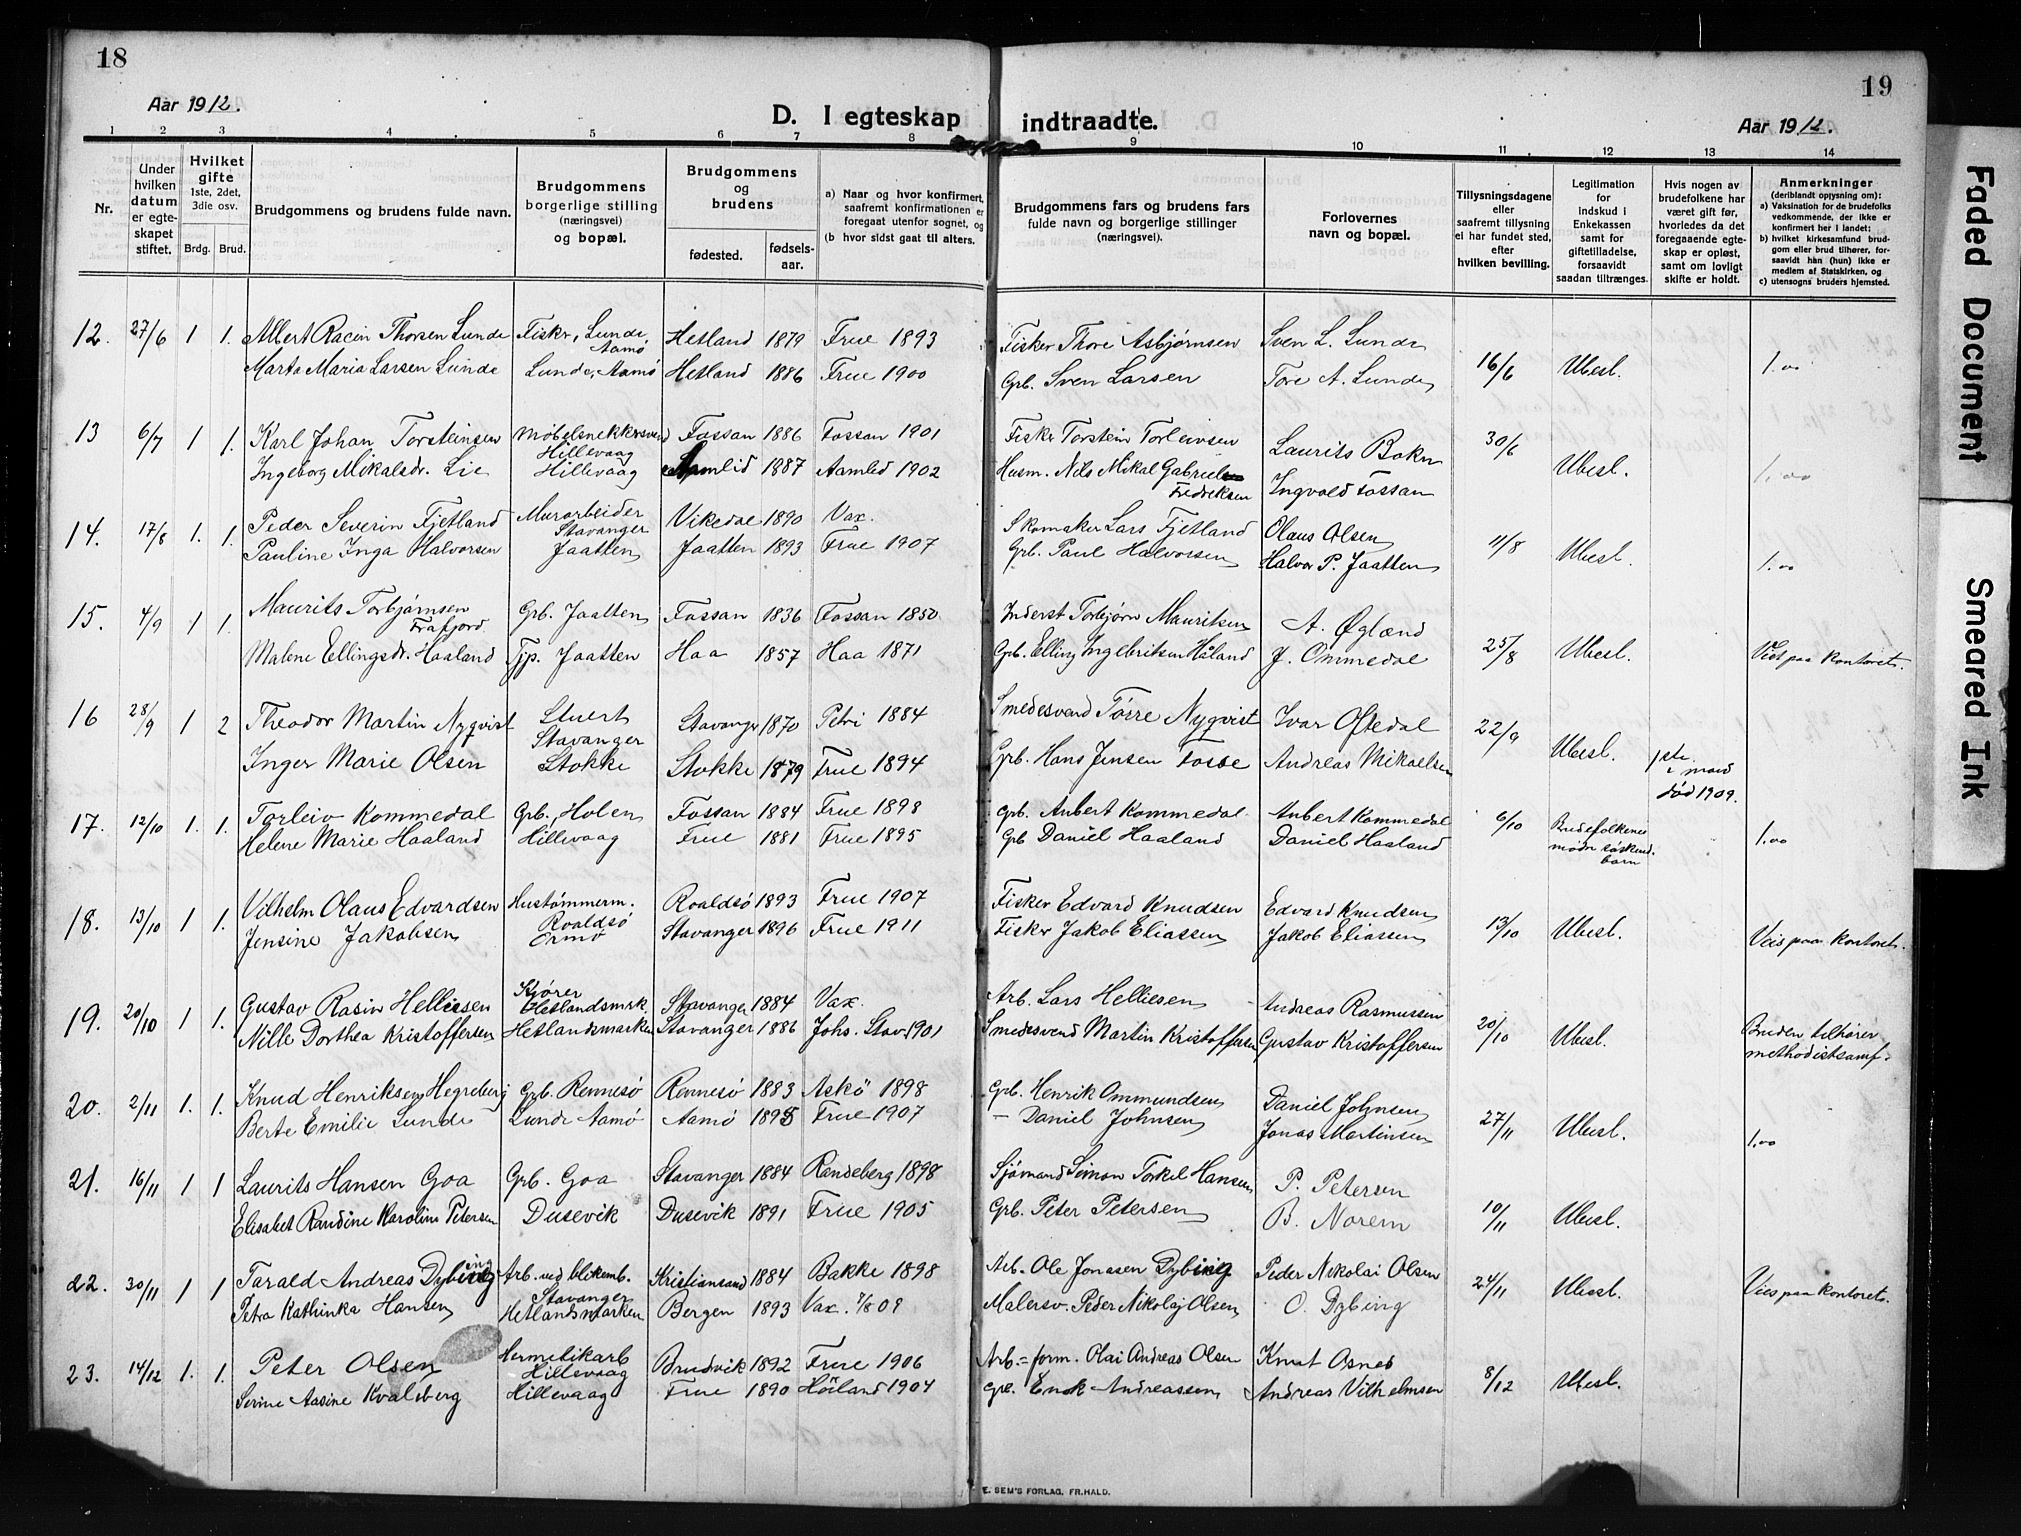 18
19
Aar 1912.
D. I egteskap indtraadte.
Aar 1912.
1 2 3 4 5 6 7 8 9 10 11 12 13 14
Nr.
Under hvilken datum er egteskapet stiftet.
Hvilket gifte 1ste, 2det, 3die osv.
Brdg. Brud.
Brudgommens og brudens fulde navn.
Brudgommens borgerlige stilling (næringsvei) og bopæl.
Brudgommens og brudens
fødested.
fødselsaar.
a) Naar og hvor konfirmert, saafremt konfirmationen er foregaat utenfor sognet, og
(b hvor sidst gaat til alters.
Brudgommens fars og brudens fars fulde navn og borgerlige stillinger (næringsvei).
Forlovernes navn og bopæl.
Tillysningsdagene eller saafremt tillysning ei har fundet sted, efter hvilken bevilling.
Legitimation for indskud i Enkekassen samt for giftetilladelse, forsaavidt saadan tiltrænges.
Hvis nogen av brudefolkene har været gift før, hvorledes da det foregaaende egteskap er opløst, samt om lovligt skifte er holdt.
Anmerkninger (deriblandt opjysning om):
a) Vaksination for de brudefolks vedkommende, der ikke er konfirmert her i landet;
b) hvilket kirkesamfund brudgom eller brud tilhører, forsaavidt han (hun) ikke er medlem af Statskirken, og
c) utensogns bruders hjemsted.
12. 27/6 1 1. Albert Racin Thorsen Lunde Fisker, Lunde, Aamø Hetland 1879 Frue 1893 Fisker Thore Asbjørnsen Sven L. Lunde
Marta Maria Larsen Lunde Lunde, Aamø Hetland 1886 Frue 1900 Grb. Sven Larsen Tore A. Lunde 16/6 Ubesl. 1.00
13 6/7 1 1. Karl Johan Torsteinsen Møbelsnekkersvend Hillevaag Fossan 1886 Fossan 1901 Fisker Torstein Torleivsen Laurits Bokn 30/6
Ingeborg Mikalsdr. Lie Hillevaag Aamlid 1887 Aamlid 1902 Husm. Nils Mikal Gabriel Fredriksen Ingvald Fossan Ubesl. 1.00
14. 17/8 1. 1. Peder Severin Fjetland Murarbeider Stavanger Vikedal 1890 Vax. Skomaker Lars Fjetland Olaus Olsen
Pauline Inga Halvorsen Jaatten Jaatten 1893 Frue 1907 Grb. Paul Halvorsen Halvor P. Jaatten 11/8 Ubesl. 1.00
15. 4/9 1 1. Maurits Torbjørnsen Frafjord Grb. Jaatten Fossan 1836 Fossan 1850 Inderst Torbjørn Mauritsen A. Øglænd
Malene Ellingsdr. Haaland Tjp. Jaatten Haa 1857 Haa 1871 Grb. Elling Ingebritsen Håland J. Ommedal 25/8 Ubesl. Viet paa kontoret.
16 28/9 1 2 Theodor Martin Nyqvist Stuert Stavanger Stavanger 1870 Petri 1884 Smedesvend Tørre Nyqvist Ivar Oftedal 22/9
Inger Marie Olsen Stokke Stokke 1879 Frue 1894 Grb. Hans Jensen Fosse Andreas Mikaelsen Ubesl. 1ste mand død 1909.
17. 12/10 1. 1. Torleiv Kommedal Grb. Holen Fossan 1884 Frue 1898 Grb. Anbert Kommedal Anbert Kommedal 6/10
Helene Marie Haaland Hillevaag Frue 1881 Frue 1895 Grb Daniel Haaland Daniel Haaland Brudefolkenes mødre søskendbarn 1.00
18. 13/10 1 1. Vilhelm Olaus Edvardsen Hustømmerm. Roaldsø Roaldsø 1893 Frue 1907 Fisker Edvard Knudsen Edvard Knudsen
Jensine Jakobsen Ormø Stavanger 1896 Frue 1911 Fisker Jakob Eliassen Jakob Eliassen 13/10 Ubesl. Vies paa kontoret.
19. 20/10 1 1. Gustav Rasin Helliesen Kjører Hetlandsmrk. Stavanger 1884 Vax. Arb. Lars Helliesen Andreas Rasmussen
Nille Dorthea Kristoffersen Hetlandsmarken Stavanger 1886 Johs. Stav. 1901 Smedesvend Martin Kristoffersen Gustav Kristoffersen 20/10 Ubesl. Bruden tilhører methodistsamf.
20. 2/11 1. 1. Knud Henriksen Hegreberg Grb. Rennesø Rennesø 1883 Askø 1898 Grb. Henrik Ommundsen Daniel Johnsen
Berte Emilie Lunde Lunde Aamø Aamø 1895 Frue 1907 — Daniel Johnsen Jonas Martinsen 27/11 Ubesl. 1.00
21. 16/11 1 1 Laurits Hansen Goa Grb. Goa Stavanger 1884 Randeberg 1898 Sjømand Simon Torkel Hansen P. Petersen
Elisabet Randine Karoline Petersen Dusevik Dusevik 1891 Frue 1905 Grb. Peter Petersen B. Norem 10/11 Ubesl.
22. 30/11 1 1 Tarald Andreas Dybing Arb. ved blikemb. Stavanger Kristiansand 1884 Bakke 1898 Arb. Ole Jonassen Dybing Peder Nikolai Olsen
Petra Kathinka Hansen Hetlandsmarken Bergen 1893 Vax. 7/8 09 Malersv. Peder Nikolaj Olsen O. Dybing 24/11 Ubesl. Vies paa kontoret.
23. 14/12 1. 1. Peter Olsen Hermetikarb Hillevaag Brudvik 1892 Frue 1906 Arb.=form. Olai Andreas Olsen Knut Osnes
Serine Aasine Kvaleberg Hillevaag Frue 1890 Høiland 1904 Andreassen Andreas Vilhelmsen 8/12 Ubesl.
E. SEM'S FORLAG, FR.HALD.
Faded Document
Smeared Ink